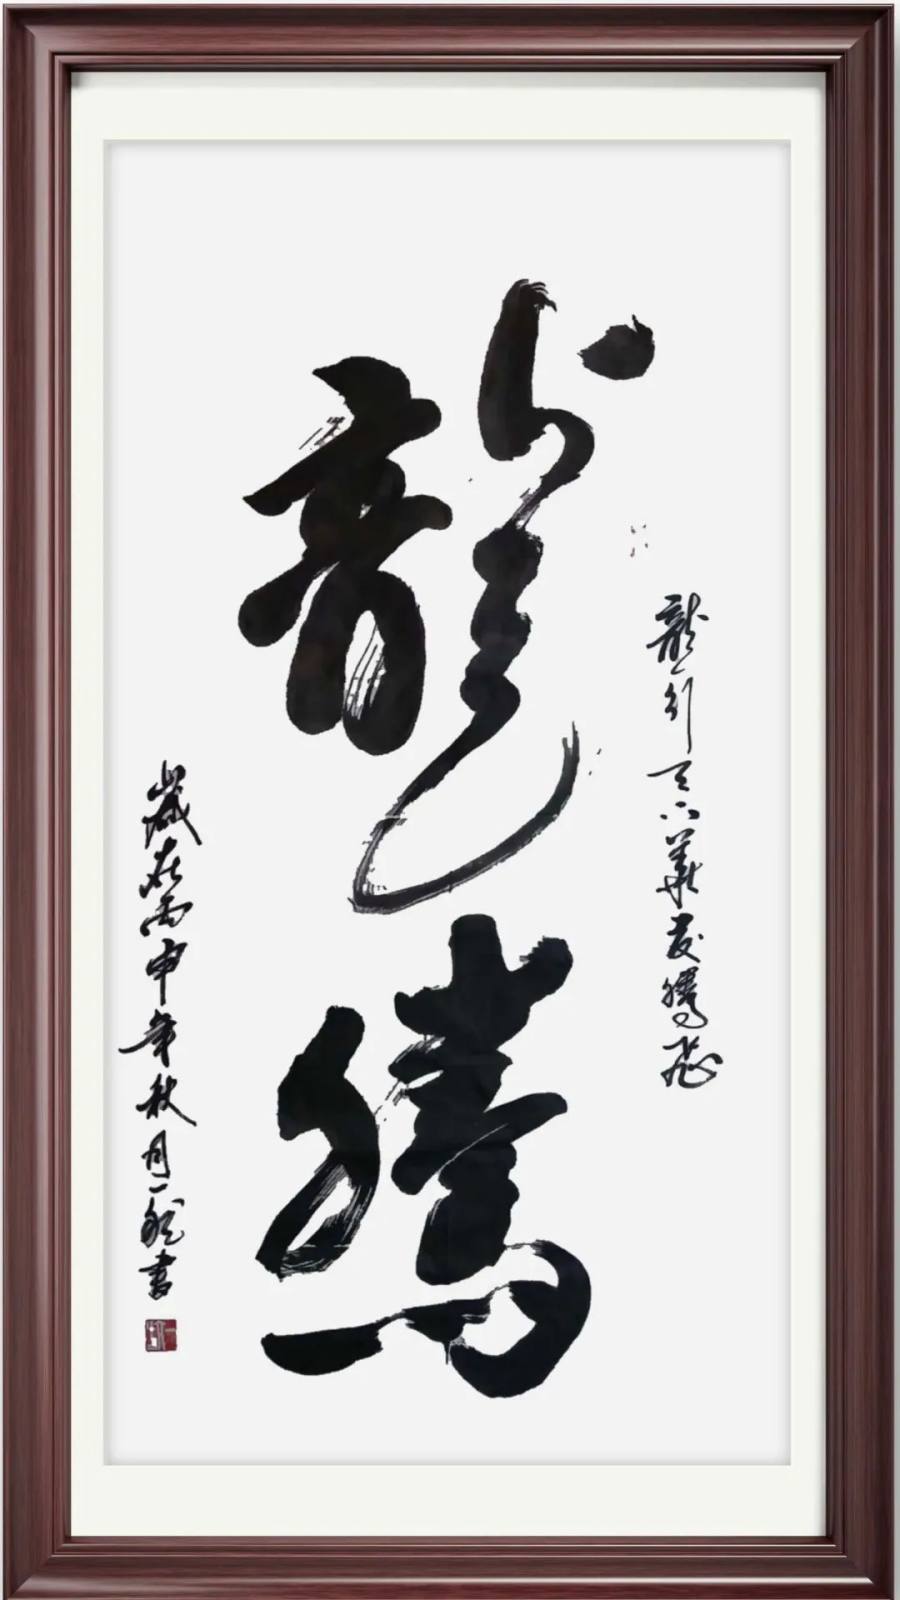 龍腾
龍行天下華夏腾飛
歲在丙申年秋月一龍書